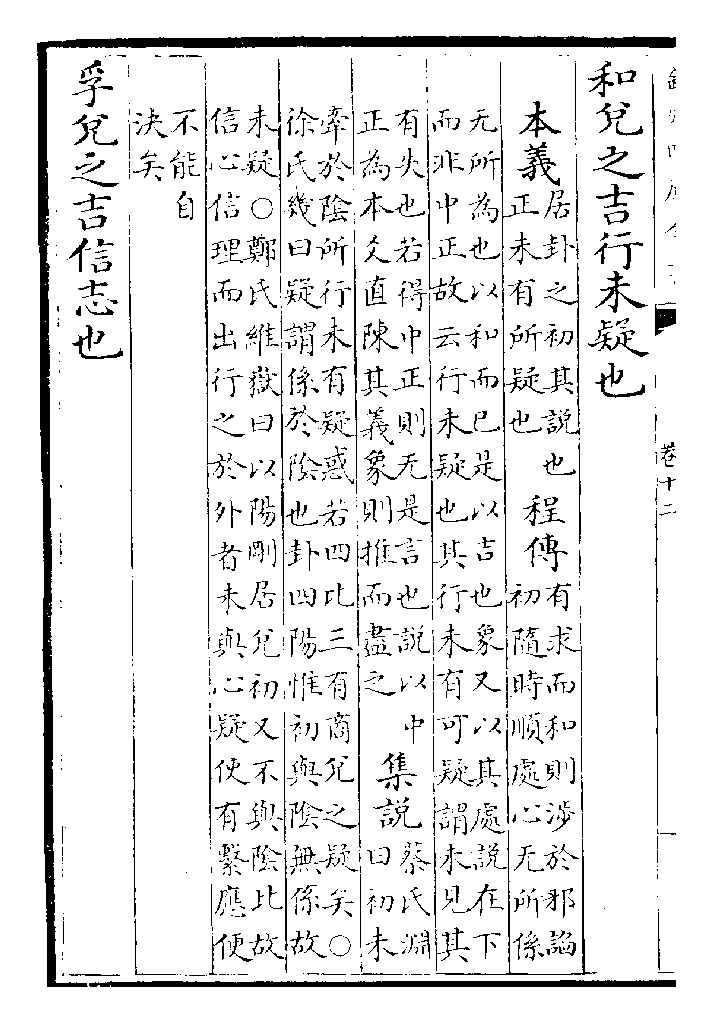 和兌之吉行未疑也
本義
居卦之初其說也
正未有所疑也
程傳
有求而和則涉於邪諂
初隨時順處心无所係
无所為也以和而已是以吉也象又以其處說在下
而非中正故云行未疑也其行未有可疑謂未見其
有失也若得中正則无是言也說以中
正為本爻直陳其義象則推而盡之
集說
蔡氏淵
曰初未
牽於陰所行未有疑惑若四比三有商兌之疑矣○
徐氏幾曰疑謂係於陰也卦四陽惟初與陰無係故
未疑○鄭氏維嶽曰以陽剛居兌初又不與陰比故
信心信理而出行之於外者未與心疑便有繫應便
不能自
決矣
孚兌之吉信志也
卷十二